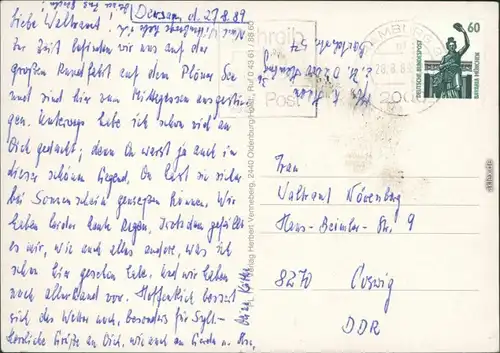 Dersau, d. 27.8.89
Liebe Waltraut!
Zur Zeit befinden wir uns auf der
großen Rundfahrt auf dem Plöner See
und sind hier zum Mittagessen ausgestie-
gen. Unterwegs habe ich schon viel an
Dich gedacht; denn Du warst ja auch in
dieser schönen Gegend, Du hast sie sicher
bei Sonnenschein genießen können. Wir
haben leider heute Regen. Trotzdem gefällt
es mir, wie auch alles andere, was ich
schon hier gesehen habe. Und wir haben
noch allerhand vor. Hoffentlich bessert
sich das Wetter noch, besonders für Sylt.-
Herzliche Grüße an Dich, wie auch an
Schreib
Post
HAMBURG
28.8.89
200
60
DEUTSCHE BUNDESPOST
BAVARIA MÜNCHEN
Verlag Herbert Venneberg, 2440 Oldenburg/Holst., Ruf 0 43 61 / 88 63
Frau
Waltraut
Hans-Beimler-Str. 9
8270 Coswig
DDR